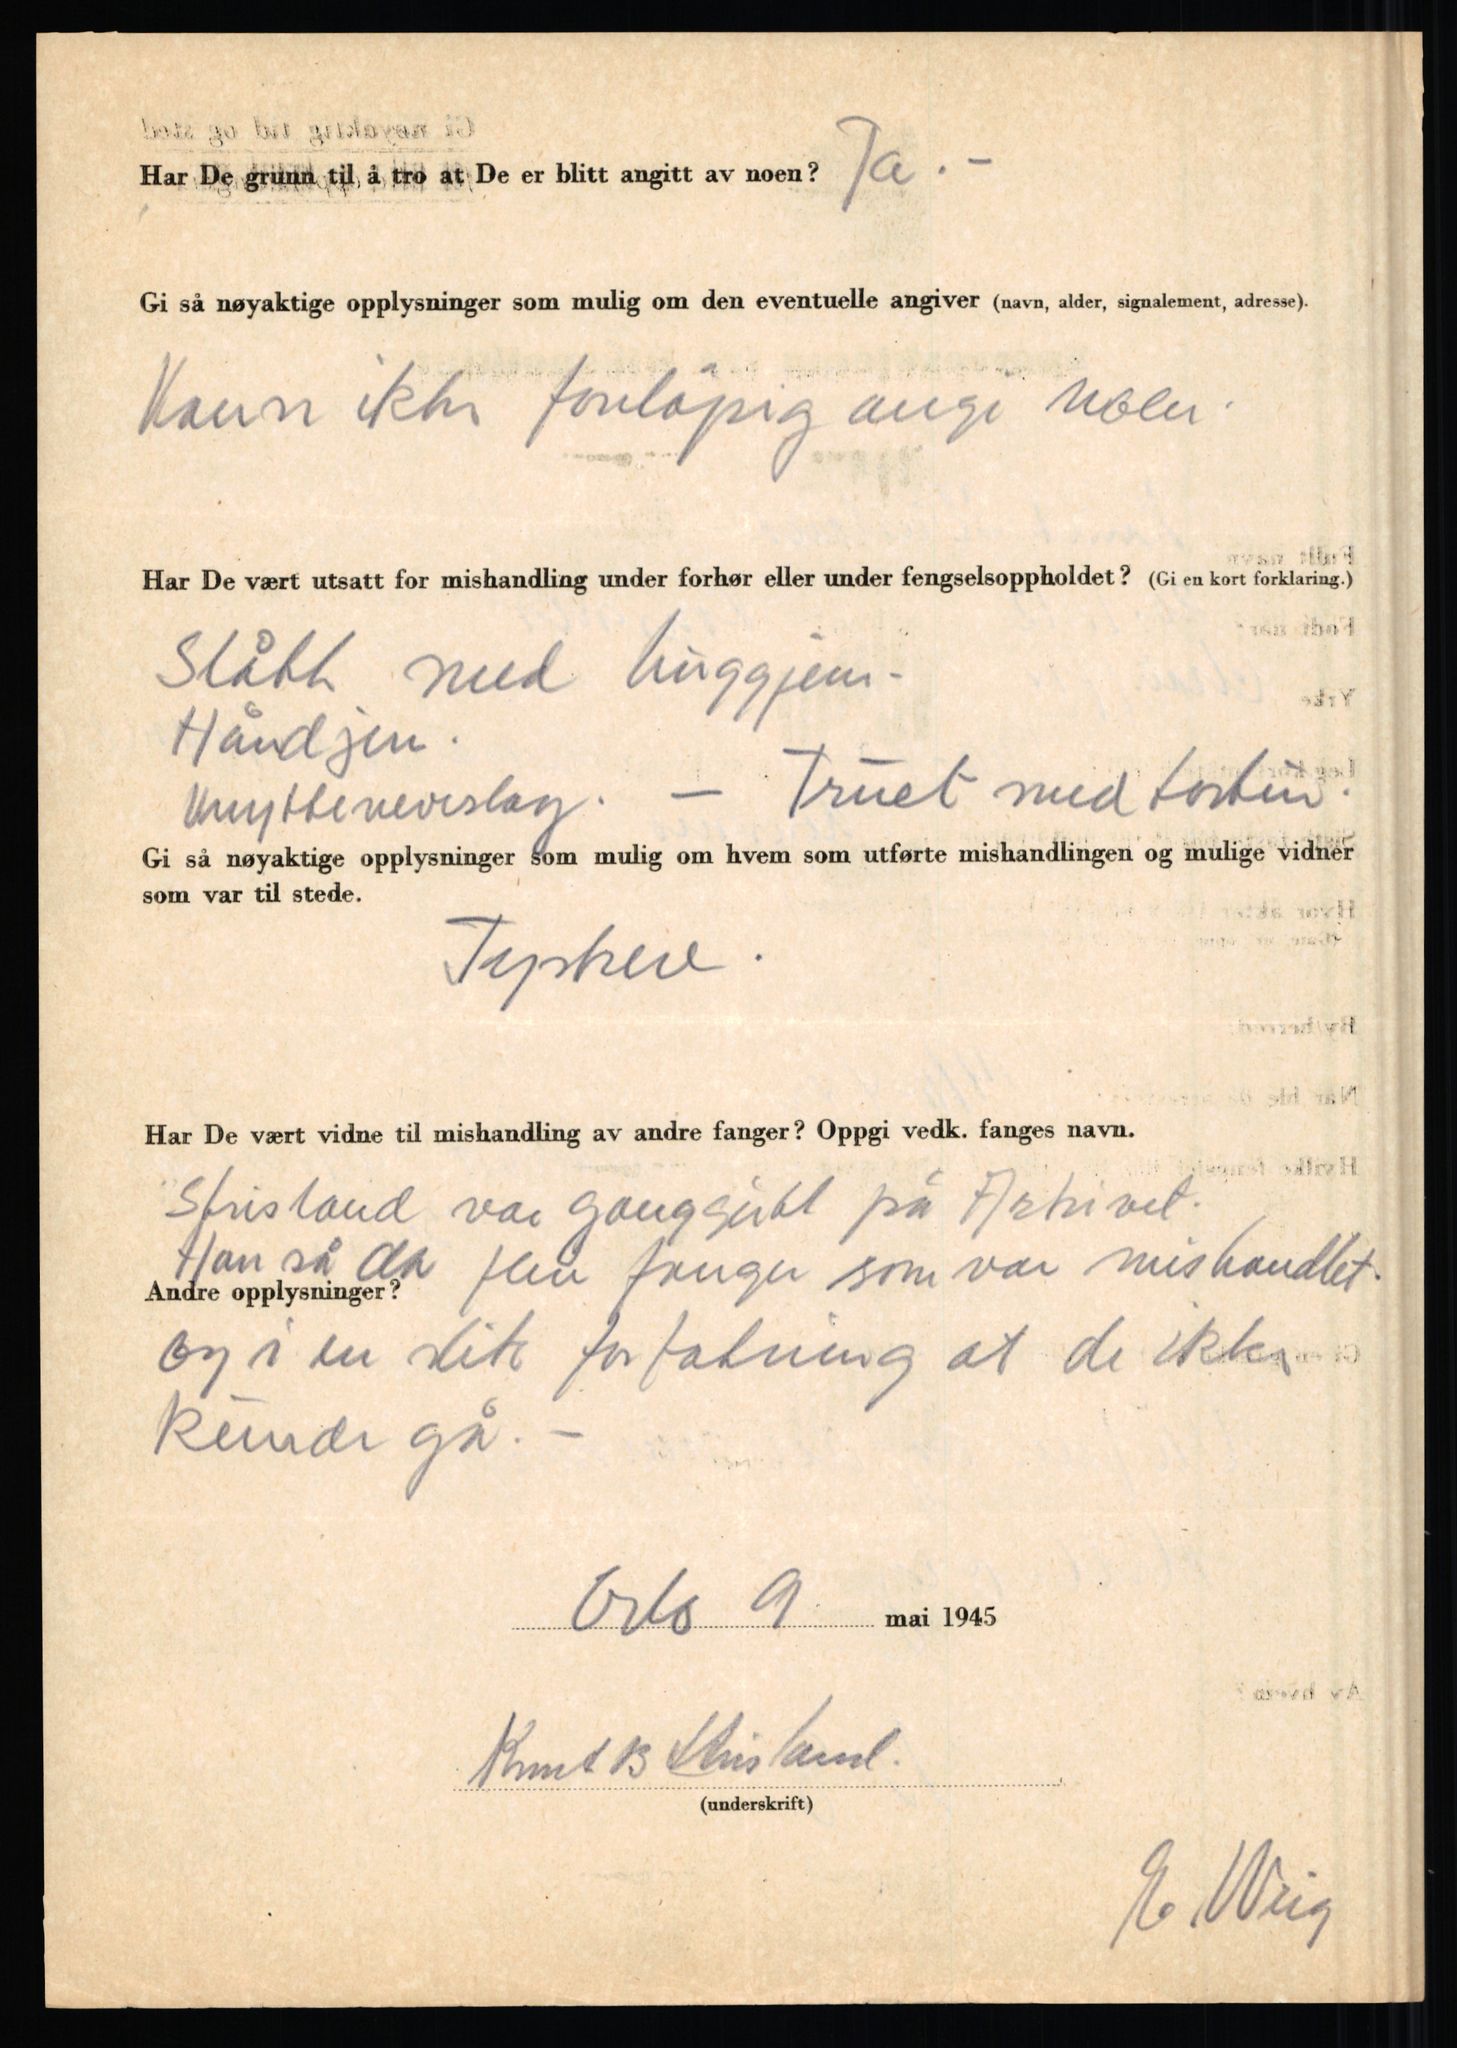 Har De grunn til å tro at De er blitt angitt av noen? Ja. -
Gi så nøyaktige opplysninger som mulig om den eventuelle angiver (navn, alder, signalement, adresse).
Kann ikke foreløpig angi noen.
Har De vært utsatt for mishandling under forhør eller under fengselsoppholdet? (Gi en kort forklaring.)
Slått med
Håndjern.
Knyttneveslag. - Truet med tortur.
Gi så nøyaktige opplysninger som mulig om hvem som utførte mishandlingen og mulige vidner
som var til stede.
Tyskere.
Har De vært vidne til mishandling av andre fanger? Oppgi vedk. fanges navn.
Strisland var ganggutt på Arkivet.
Han så da flere fanger som var mishandlet.
Andre opplysninger?
og i en slik forfatning at de ikke
kunde gå. -
Oslo 9 mai 1945
Knut B Strisland.
(underskrift)
E. Wiig